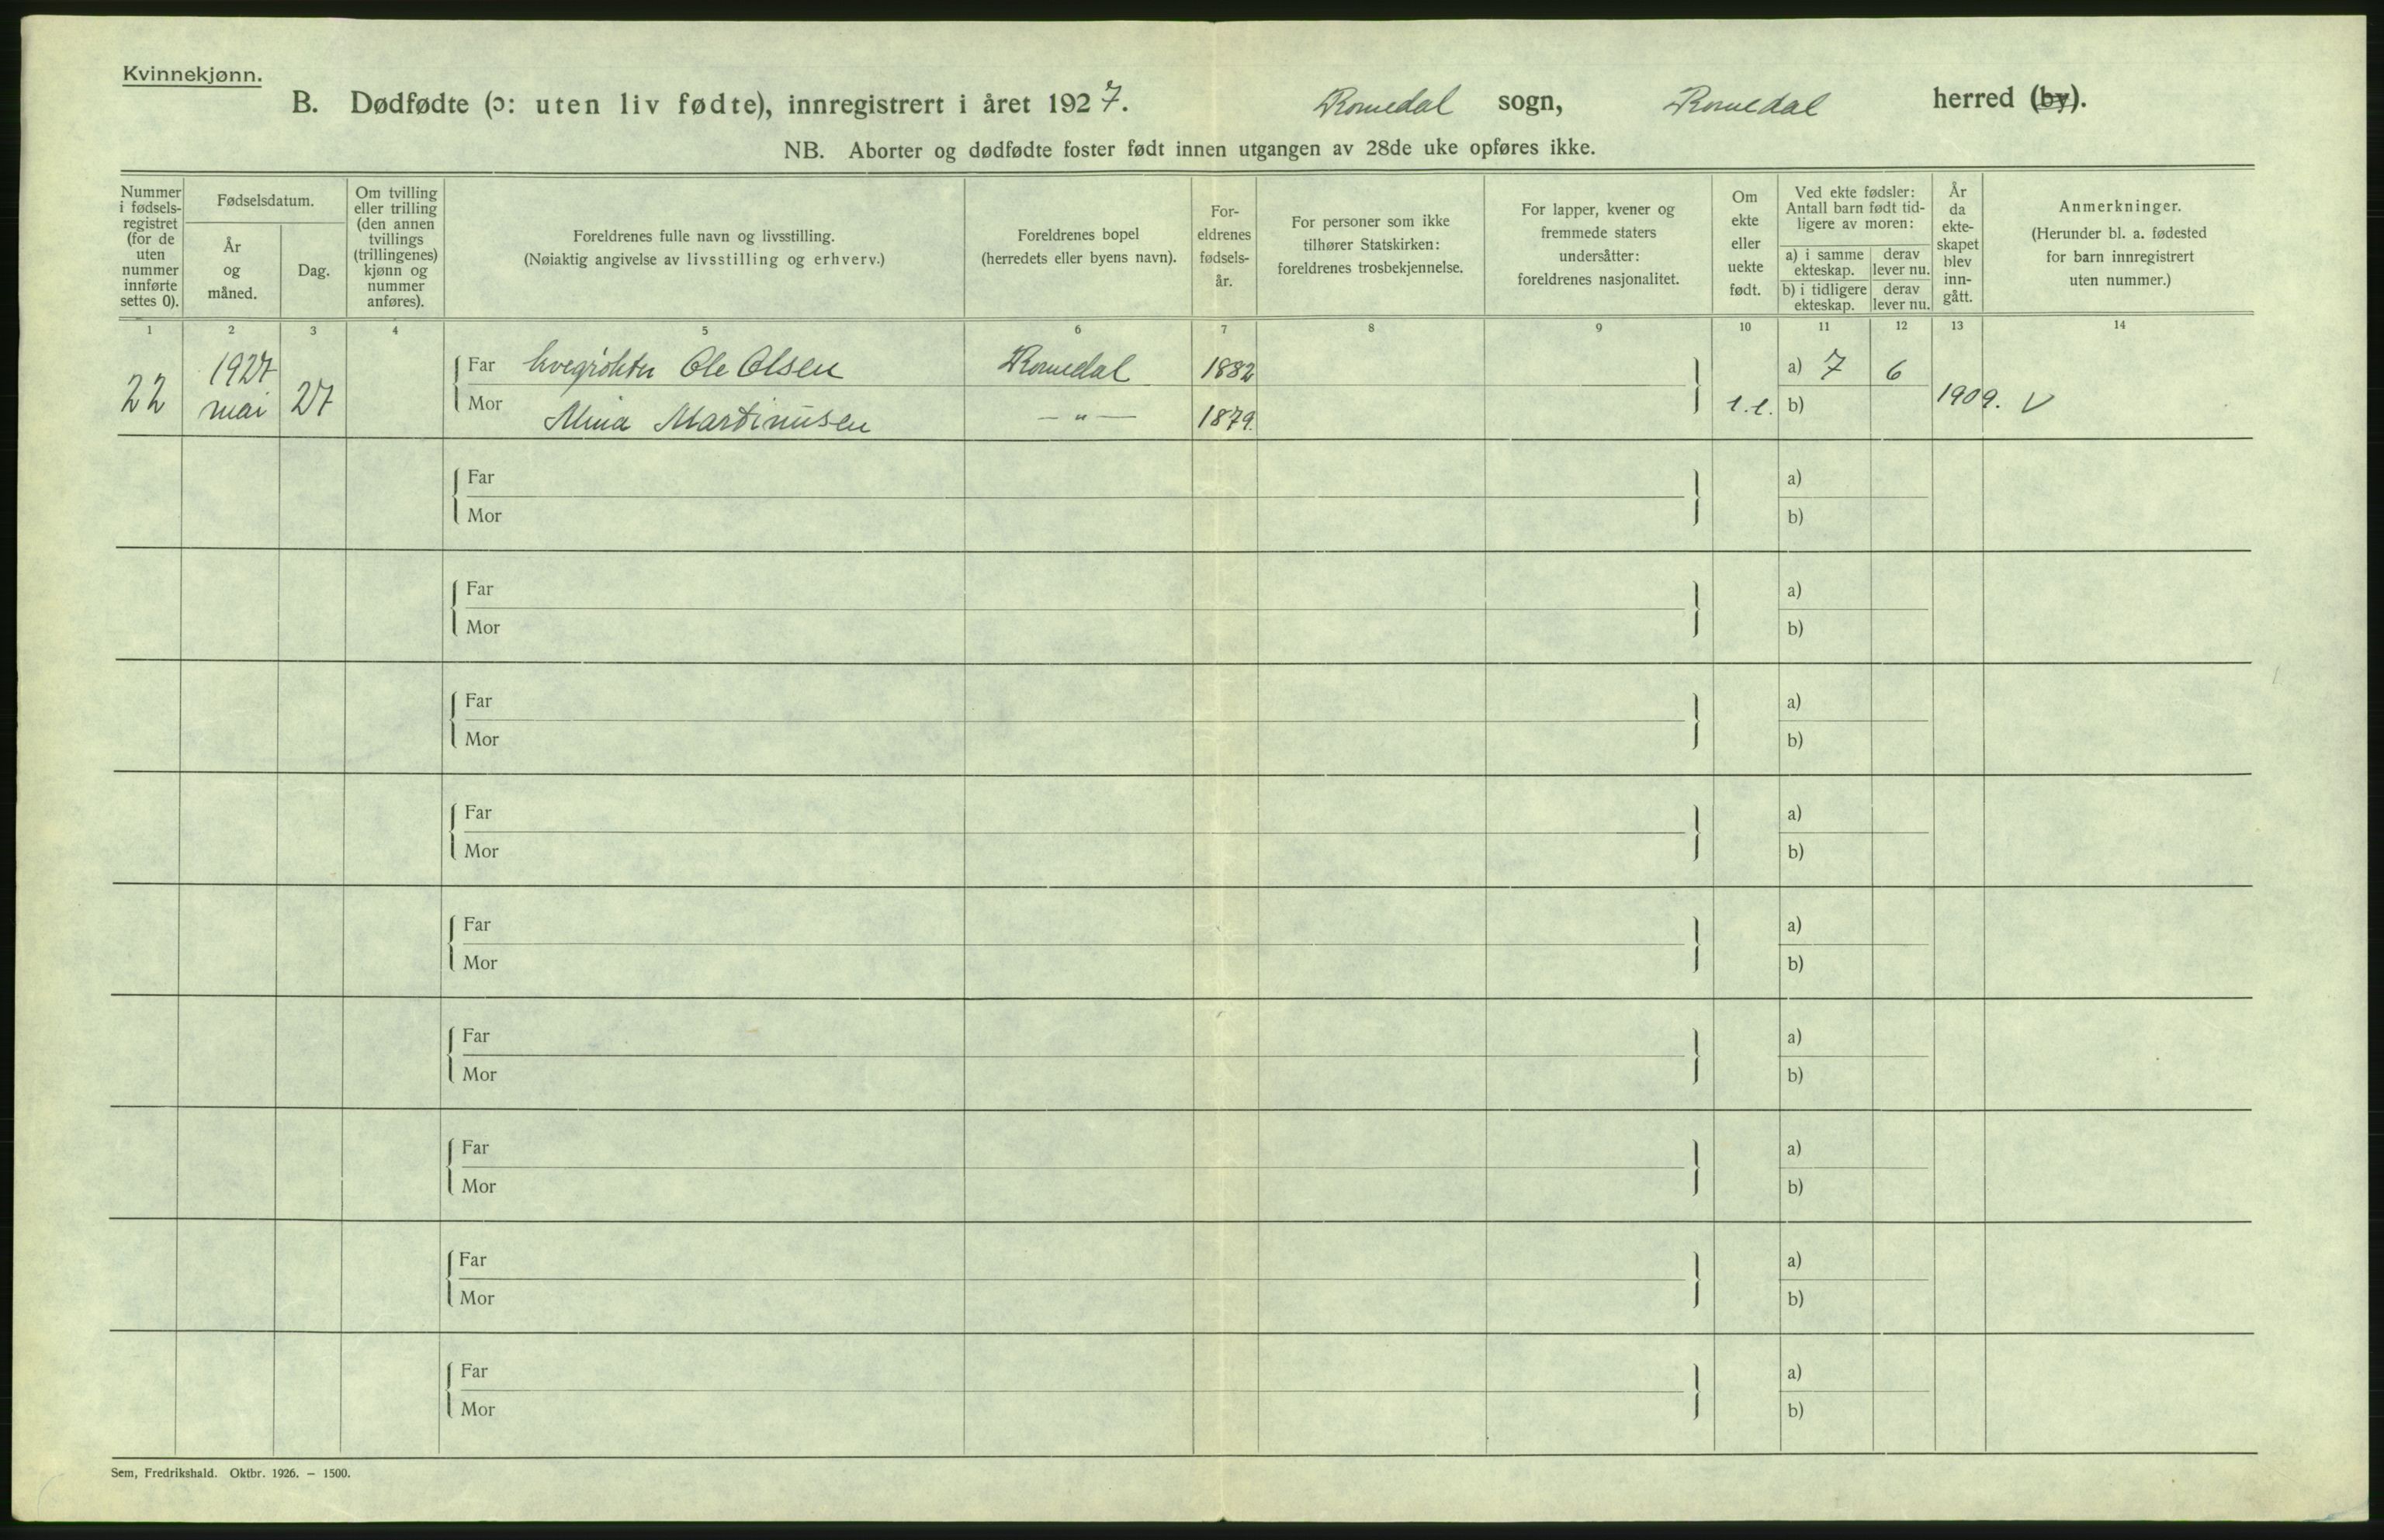 Kvinnekjønn.
B. Dødfødte (ɔ: uten liv fødte), innregistrert i året 1927. Romedal sogn, Romedal herred (by).
NB. Aborter og dødfødte foster født innen utgangen av 28de uke opføres ikke.
Nummer
i fødsels-
registret
(for de
uten
nummer
innførte
settes 0).
Fødselsdatum.
År
og
måned.
Dag.
Om tvilling
eller trilling
(den annen
tvillings
(trillingenes)
kjønn og
nummer
anføres).
Foreldrenes fulle navn og livsstilling.
(Nøiaktig angivelse av livsstilling og erhverv.)
Foreldrenes bopel
(herredets eller byens navn).
For-
eldrenes
fødsels-
år.
For personer som ikke
tilhører Statskirken:
foreldrenes trosbekjennelse.
For lapper, kvener og
fremmede staters
undersåtter:
foreldrenes nasjonalitet.
Om
ekte
eller
uekte
født.
Ved ekte fødsler:
Antall barn født tid-
ligere av moren:
a) i samme
ekteskap.
derav
lever nu.
b) i tidligere
ekteskap.
derav
lever nu.
År
da
ekte-
skapet
blev
inn-
gått.
Anmerkninger.
(Herunder bl. a. fødested
for barn innregistrert
uten nummer.)
1 2 3 4 5 6 7 8 9 10 11 12 13 14
22 1927 mai 27
Far Kvegrökter Ole Olsen Romedal 1882 a) 7 6
Mor Mina Martinusen — " — 1879. b) 1909. V
Far a)
Mor b)
Far a)
Mor b)
Far a)
Mor b)
Far a)
Mor b)
Far a)
Mor b)
Far a)
Mor b)
Far a)
Mor b)
Far a)
Mor b)
Far a)
Mor b)
Sem, Fredrikshald. Oktbr. 1926. – 1500.